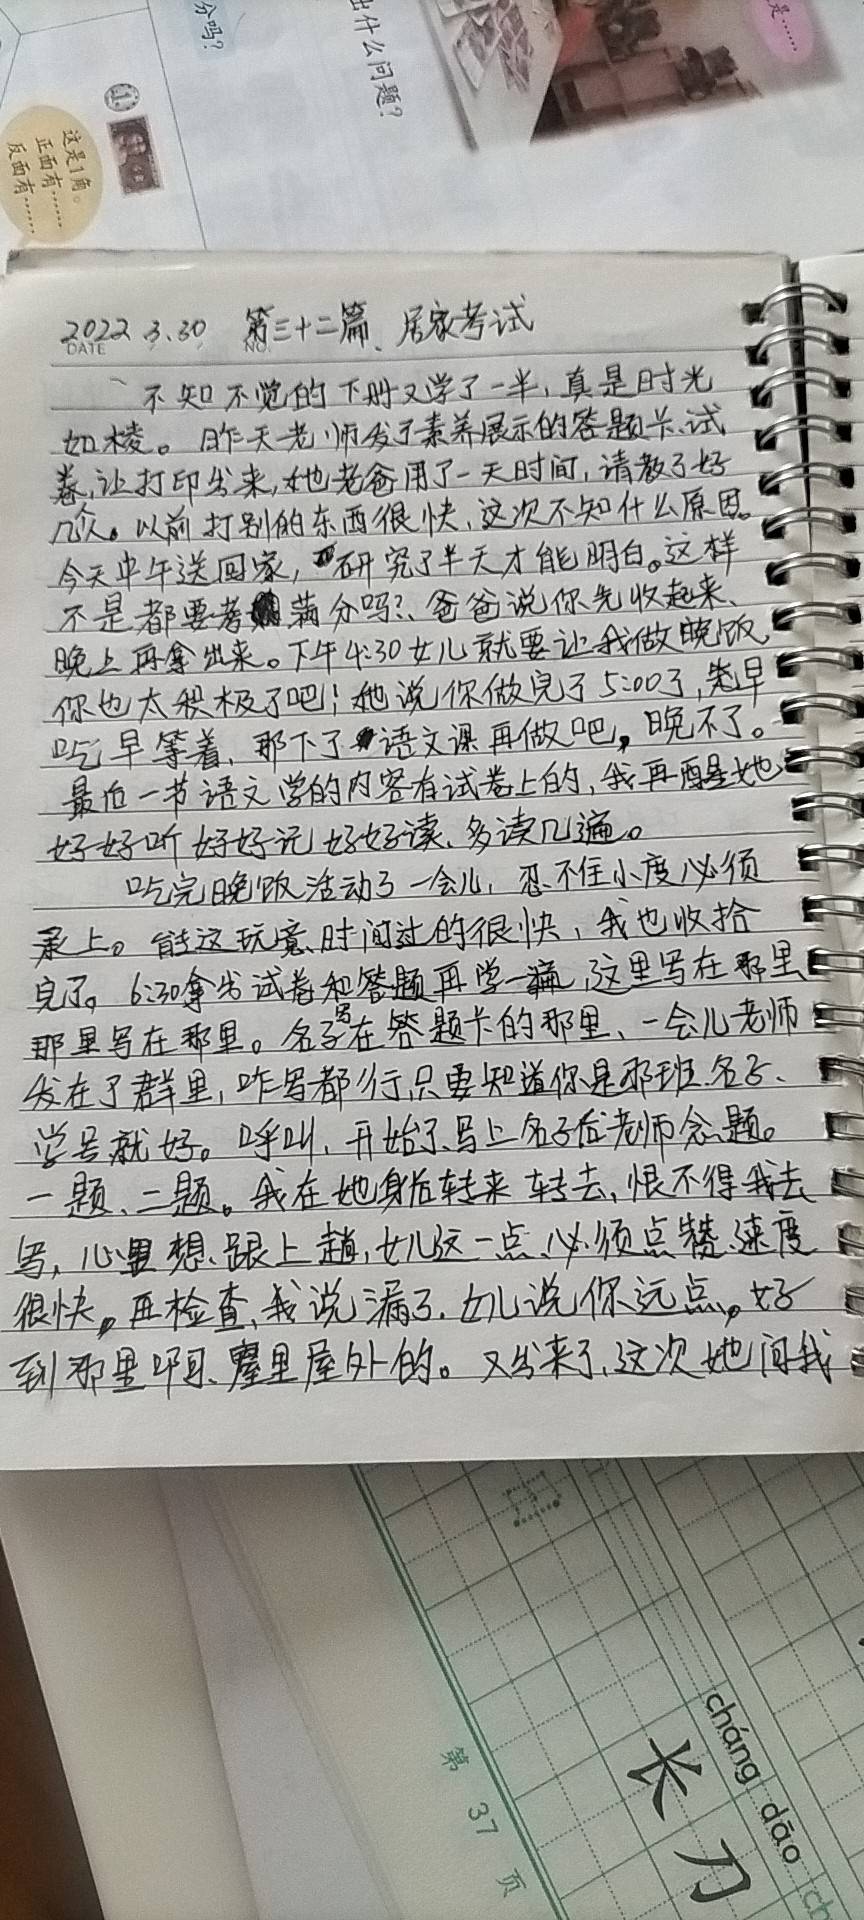 分吗?
出什么问题?
是……
1
这是1角。
正面有……
反面有……
2022 3.30 第三十二篇、居家考试
DATE NO.
不知不觉的下册又学了一半,真是时光
如棱。昨天老师发了素养展示的答题卡、试
卷,让打印出来,她老爸用了一天时间,请教了好
几个。以前打别的东西很快,这次不知什么原因。
今天中午送回家,研究了半天才能明白。这样
不是都要考满分吗?、爸爸说你先收起来、
晚上再拿出来。下午4:30女儿就要让我做晚饭
你也太积极了吧!她说你做完了5:00了,早
吃早等着、那下了语文课再做吧,晚不了。
最后一节语文学的内容有试卷上的,我再醒她
好好听好好记好好读、多读几遍。
吃完晚饭活动了一会儿,忍不住小度必须
来上。能这玩意、时间过的很快,我也收拾
完了。6:30拿出试卷和答题再学一遍,这里写在那里
那里写在那里。名字写在答题卡的那里、一会儿老师
发在了群里,咋写都行,只要知道你是那班、名子、
学号就好。呼叫,开始了、写上名子后老师念题。
一题、二题。我在她身后转来转去,恨不得我去
写,心里想、跟上趟,女儿这一点、必须点赞、速度
很快。再检查、我说漏了、女儿说你远点。好
到那里啊、屋里屋外的。又出来了、这次她问我
cháng dāo ch
长刀
第 37 页